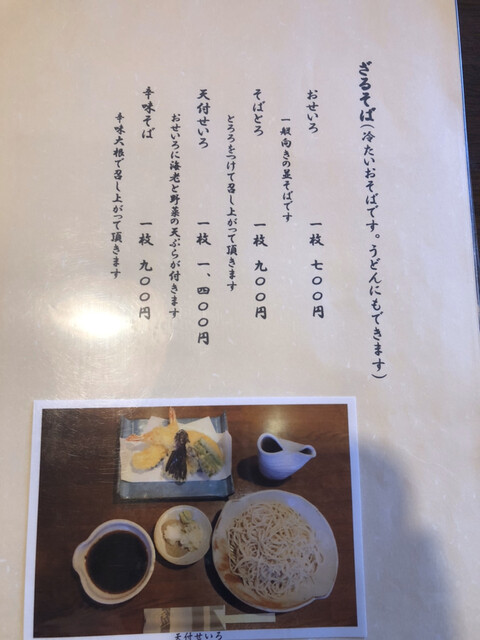 ざるそば(冷たいおそばです。うどんにもできます)
おせいろ 一枚 七〇〇円
一般向きの並そばです
そばとろ 一枚 九〇〇円
とろろをつけて召し上がって頂きます
天付せいろ 一枚 一、四〇〇円
おせいろに海老と野菜の天ぷらが付きます
辛味そば 一枚 九〇〇円
辛味大根で召し上がって頂きます
天付せいろ